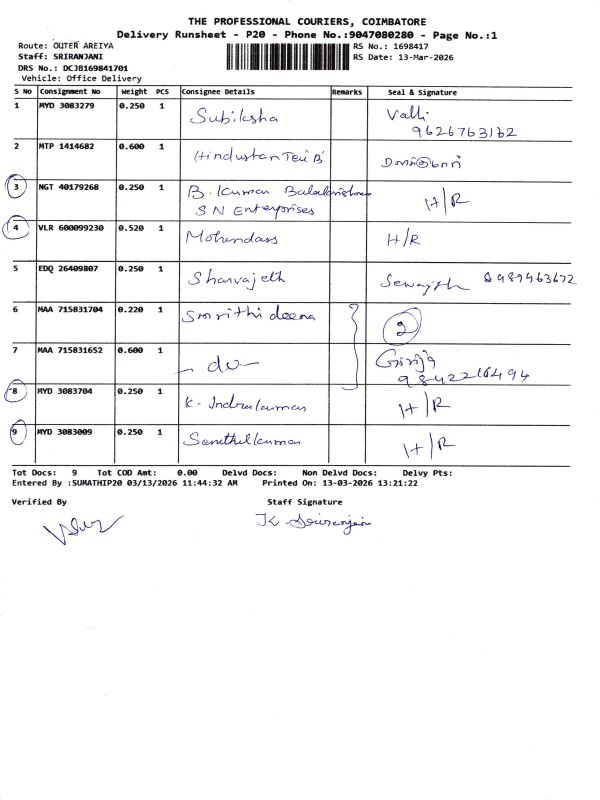 THE PROFESSIONAL COURIERS, COIMBATORE
Delivery Runsheet - P20 - Phone No.:9047080280 - Page No.:1
Route: OUTER AREIYA
RS No.: 1698417
Staff: SRIRANJANI
RS Date: 13-Mar-2026
DRS No.: DCJB169841701
Vehicle: Office Delivery
S No Consignment No Weight PCS Consignee Details Remarks Seal & Signature
1 MYD 3083279 0.250 1 Subiksha Valli
9626763162
2 MTP 1414682 0.600 1 Hindustan
3 NGT 40179268 0.250 1 B. Kumar Balakrishnan H/R
S N Enterprises
4 VLR 600099230 0.520 1 Mohendass H/R
5 EDQ 26409807 0.250 1 Sharvajeth
6 MAA 715831704 0.220 1 Smrithi deena 2
7 MAA 715831652 0.600 1 - do - Girija
9842216494
8 MYD 3083704 0.250 1 K. Indrakumar H/R
9 MYD 3083009 0.250 1 Senthilkumar H/R
Tot Docs: 9 Tot COD Amt: 0.00 Delvd Docs: Non Delvd Docs: Delvy Pts:
Entered By :SUMATHIP20 03/13/2026 11:44:32 AM Printed On: 13-03-2026 13:21:22
Verified By Staff Signature